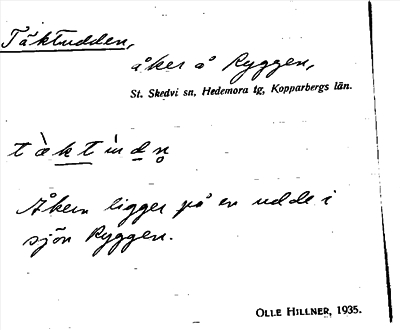 Täktudden,
åker å Ryggen,
St. Skedvi sn, Hedemora tg, Kopparbergs län.
Åkern ligger på en udde i
sjön Ryggen.
OLLE HILLNER, 1935.